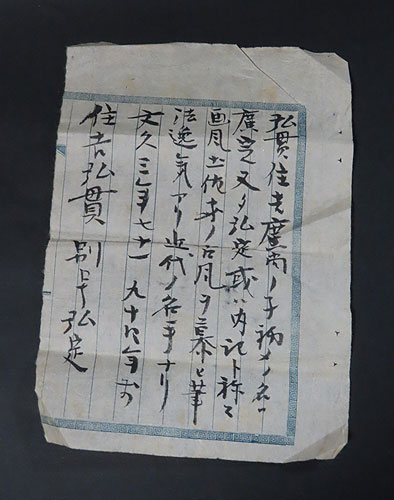 弘貫住吉廣尚ノ子初メ名ハ
廣定又タ弘定或ハ内記ト称ス
画風土佐ノ古風ヲ慕ヒ筆
法逸気アリ近代ノ名手ナリ
文久三年七十一 九十年前
住吉弘貫 別号弘定